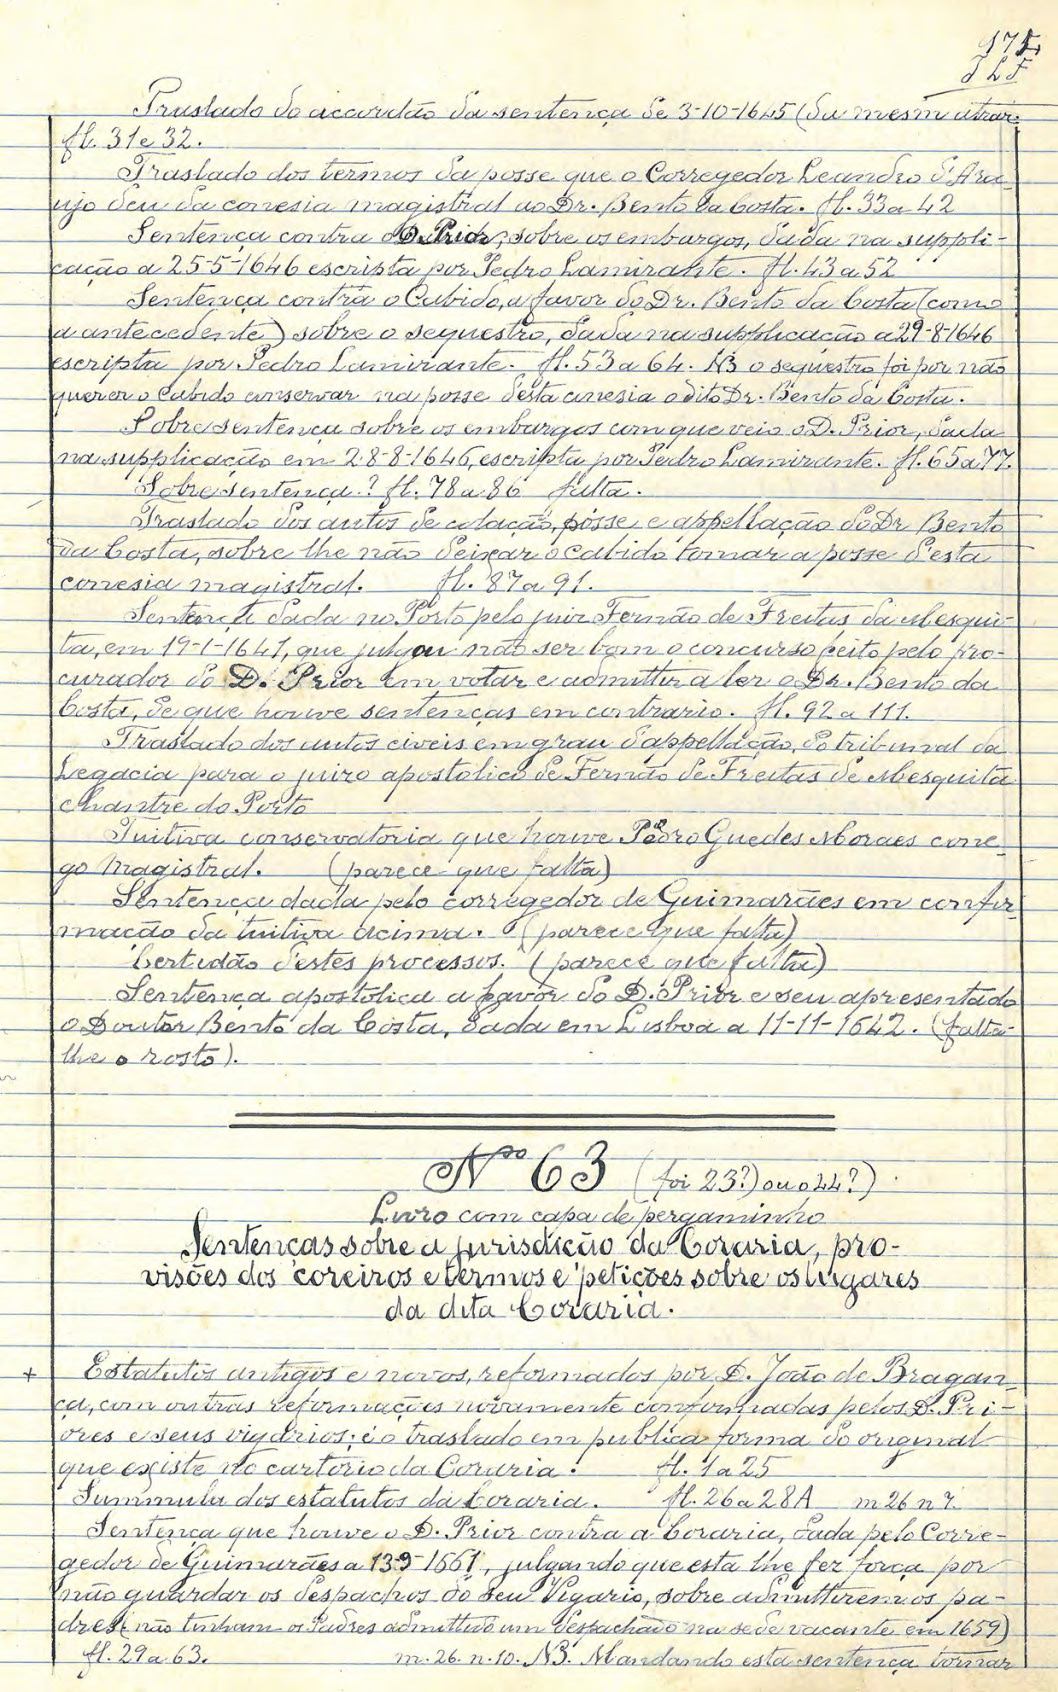 Traslado do accordão da sentença de 3-10-1645 (da mesm atraz.
fl. 31 e 32.
Traslado dos termos da posse que o Corregedor Leandro d'Ara-
ujo deu da conesia magistral ao Dr. Bento da Costa. fl. 33 a 42
Sentença contra o D. Prior, sobre os embargos, dada na suppli-
cação a 25-5-1646 escripta por Pedro Lamirante. fl. 43 a 52
Sentença contra o Cabido, a favor do Dr. Bento da Costa (como
a antecedente) sobre o sequestro, dada na supplicação a 29-8-1646
escripta por Pedro Lamirante. fl. 53 a 64. NB o sequestro foi por não
querer o Cabido conservar na posse desta conesia o dito Dr. Bento da Costa.
Sobresentença sobre os embargos com que veio o D. Prior, dada
na supplicação em 28-8-1646, escripta por Pedro Lamirante. fl. 65 a 77.
Sobresentença? fl. 78 a 86 falta.
Traslado dos autos de colação, posse e appellação do Dr Bento
da Costa, sobre lhe não deixar o Cabido tomar a posse d'esta
conesia magistral. fl. 87 a 91.
Sentença dada no Porto pelo juiz Fernão de Freitas da Mesqui-
ta, em 19-1-1641, que julgou não ser bom o concurso feito pelo pro-
curador do D. Prior em votar e admittir a ler o Dr. Bento da
Costa, de que houve sentenças em contrario. fl. 92 a 111.
Traslado dos autos civeis em grau d'appellação, do tribunal da
Legacia para o juizo apostolico de Fernão de Freitas de Mesquita
chantre do Porto
Tuitiva conservatoria que houve Pedro Guedes Moraes cone-
go Magistral. (parece que falta)
Sentença dada pelo corregedor de Guimarães em confir-
mação da tuitiva acima. (parece que falta)
Certidão d'estes processos. (parece que falta)
Sentença apostolica a favor do D. Prior e seu apresentado
o Doutor Bento da Costa, dada em Lisboa a 11-11-1642. (falta-
lhe o rosto).
Nº 63 (foi 23?) ou o 44?)
Livro com capa de pergaminho
Sentenças sobre a jurisdicção da Coraria, pro-
visões dos coreiros e termos e petições sobre os lugares
da dita Coraria.
+ Estatutos antigos e novos, reformados por D. João de Bragan-
ça, com outras reformações novamente confirmadas pelos D. Pri-
ores e seus vigarios; é o traslado em publica forma do original
que existe no cartorio da Coraria. fl. 1 a 25
Summula dos estatutos da Coraria. fl. 26 a 28A m 26 n 7.
Sentença que houve o D. Prior contra a Coraria, dada pelo Corre-
gedor de Guimarães a 13-9-1661, julgando que esta lhe fez força por
não guardar os despachos do seu Vigario, sobre admittirem os pa-
dres (não tinham os Padres admittido um despachado na sede vacante em 1659)
fl. 29 a 63. m. 26. n. 10. NB. Mandando esta sentença tornar